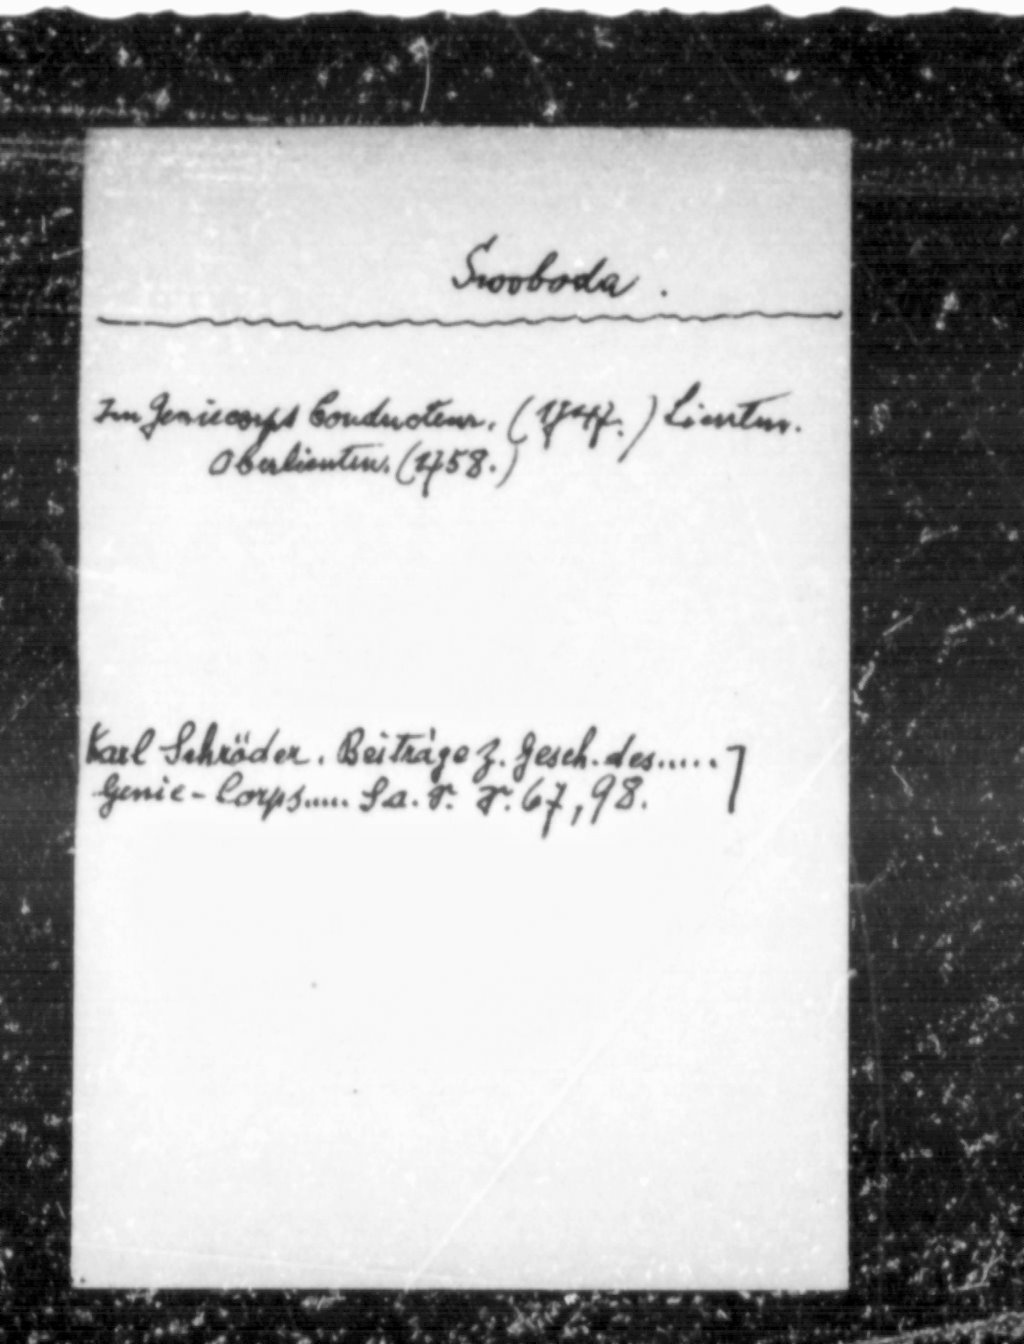 Swoboda.
Im Geniecorps Conducteur. (1747.) Lieutn.
Oberlieutn. (1758.)
Karl Schröder. Beiträge z. Gesch. des.....]
Genie-Corps.... S. a. r. r. 67, 98.